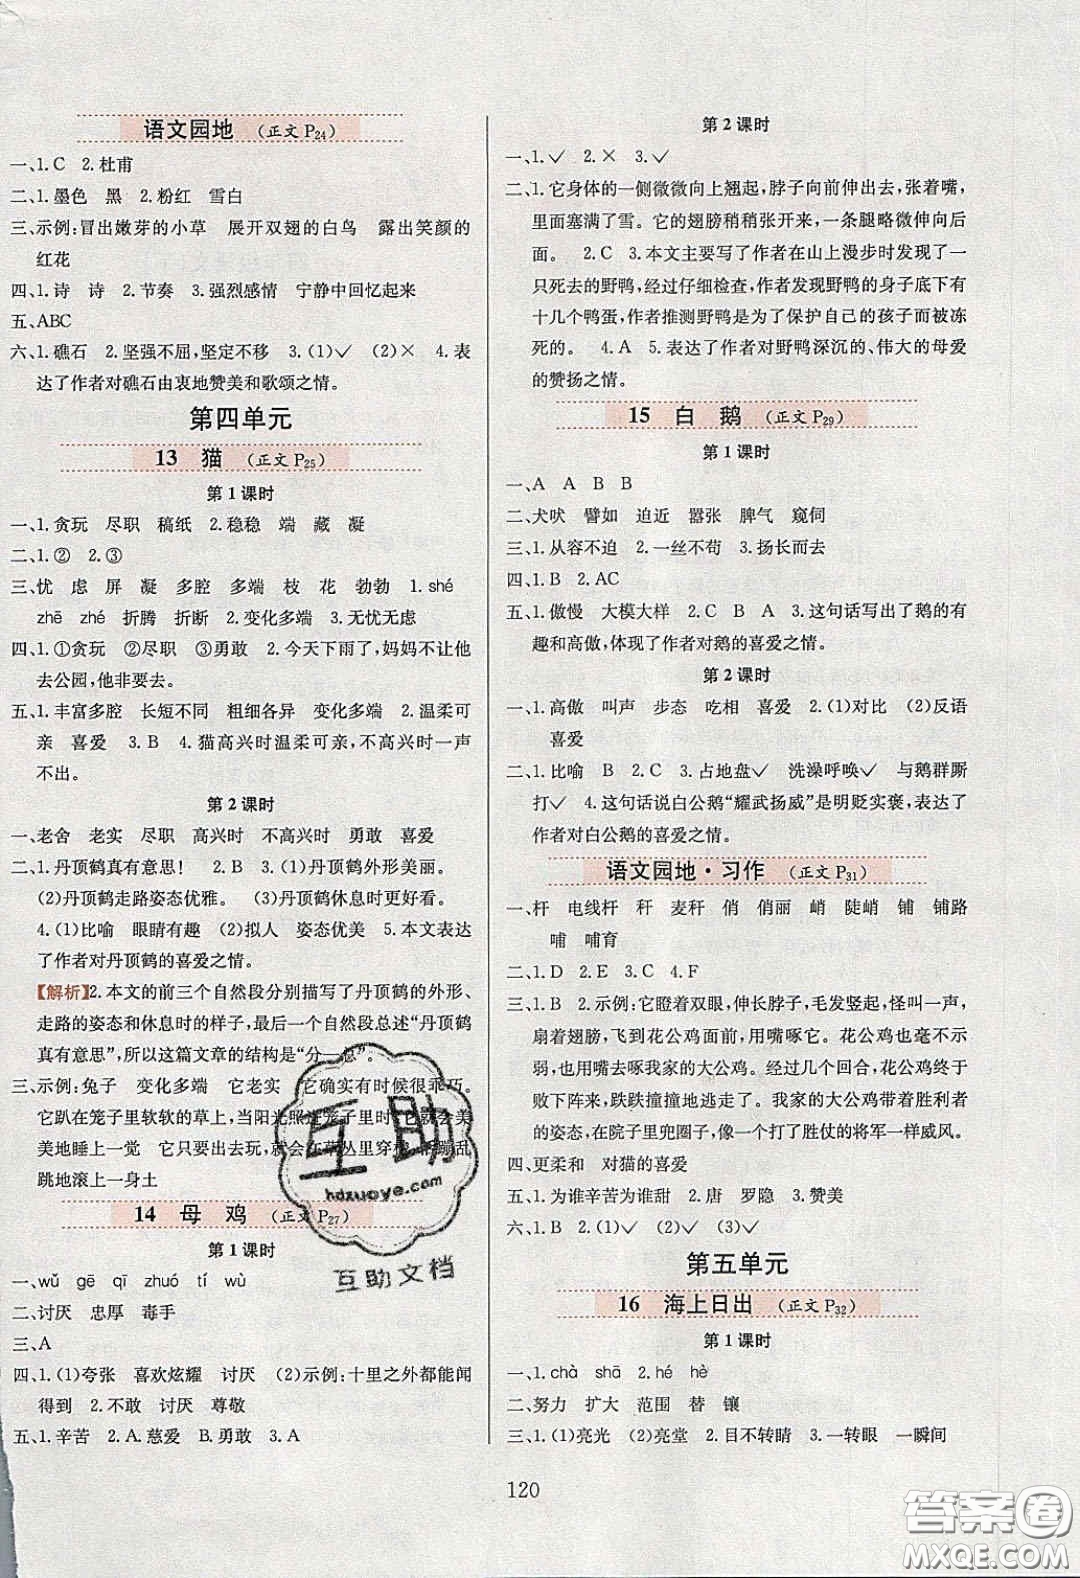 语文园地 (正文 P24)
一、1. C 2. 杜甫
二、1. 墨色 黑 2. 粉红 雪白
三、示例:冒出嫩芽的小草 展开双翅的白鸟 露出笑颜的
红花
四、1. 诗 诗 2. 节奏 3. 强烈感情 宁静中回忆起来
五、ABC
六、1. 礁石 2. 坚强不屈,坚定不移 3. (1)✓ (2)× 4. 表
达了作者对礁石由衷地赞美和歌颂之情。
第四单元
13 猫 (正文 P25)
第 1 课时
一、1. 贪玩 尽职 稿纸 2. 稳稳 端 藏 凝
二、1. ② 2. ③
三、忧 虑 屏 凝 多腔 多端 枝 花 勃勃 1. shé
zhē zhé 折腾 折断 2. 变化多端 3. 无忧无虑
四、1. ①贪玩 ②尽职 ③勇敢 2. 今天下雨了,妈妈不让他
去公园,他非要去。
五、1. 丰富多腔 长短不同 粗细各异 变化多端 2. 温柔可
亲 喜爱 3. B 4. 猫高兴时温柔可亲,不高兴时一声
不出。
第 2 课时
一、老舍 老实 尽职 高兴时 不高兴时 勇敢 喜爱
二、1. 丹顶鹤真有意思! 2. B 3. (1)丹顶鹤外形美丽。
(2)丹顶鹤走路姿态优雅。 (3)丹顶鹤休息时很美。
4. (1)比喻 眼睛有趣 (2)拟人 姿态优美 5. 本文表
达了作者对丹顶鹤的喜爱之情。
【解析】2. 本文的前三个自然段分别描写了丹顶鹤的外形、
走路的姿态和休息时的样子,最后一个自然段总述“丹顶鹤
真有意思”,所以这篇文章的结构是“分—总”。
三、示例:兔子 变化多端 它老实 它确实有时候很乖巧。
它趴在笼子里软软的草上,当阳光照进笼子里时,它就会美
美地睡上一觉 它只要出去玩,就会在草丛里穿梭,蹦蹦乱
跳地滚上一身土
14 母 鸡 (正文 P27)
第 1 课时
一、wǔ gē qī zhuó tí wù
二、讨厌 忠厚 毒手
三、A
四、1. (1)夸张 喜欢炫耀 讨厌 (2)示例:十里之外都能闻
得到 2. 不敢 讨厌 尊敬
五、1. 辛苦 2. A. 慈爱 B. 勇敢 3. A
第 2 课时
一、1. ✓ 2. × 3. ✓
二、1. 它身体的一侧微微向上翘起,脖子向前伸出去,张着嘴,
里面塞满了雪。它的翅膀稍稍张开来,一条腿略微伸向后
面。 2. C 3. 本文主要写了作者在山上漫步时发现了一
只死去的野鸭,经过仔细检查,作者发现野鸭的身子底下有
十几个鸭蛋,作者推测野鸭是为了保护自己的孩子而被冻
死的。 4. A 5. 表达了作者对野鸭深沉的、伟大的母爱
的赞扬之情。
15 白 鹅 (正文 P29)
第 1 课时
一、A A B B
二、犬吠 譬如 迫近 嚣张 脾气 窥伺
三、1. 从容不迫 2. 一丝不苟 3. 扬长而去
四、1. B 2. AC
五、1. 傲慢 大模大样 2. C B A 3. 这句话写出了鹅的有
趣和高傲,体现了作者对鹅的喜爱之情。
第 2 课时
一、1. 高傲 叫声 步态 吃相 喜爱 2. (1)对比 (2)反语
喜爱
二、1. 比喻 2. C 3. 占地盘✓ 洗澡呼唤✓ 与鹅群厮
打✓ 4. 这句话说白公鹅“耀武扬威”是明贬实褒,表达了
作者对白公鹅的喜爱之情。
语文园地·习作 (正文 P31)
一、杆 电线杆 秆 麦秆 俏 俏丽 峭 陡峭 铺 铺路
哺 哺育
二、1. D 2. E 3. C 4. F
三、1. B 2. 示例:它瞪着双眼,伸长脖子,毛发竖起,怪叫一声,
扇着翅膀,飞到花公鸡面前,用嘴啄它。花公鸡也毫不示
弱,用嘴去啄我家的大公鸡。几个回合后,花公鸡终于
败下阵来,跌跌撞撞地逃走了。我家的大公鸡带着胜利者
的姿态,在院子里兜圈子,像一个打了胜仗的将军一样威风。
四、更柔和 对猫的喜爱
五、1. 为谁辛苦为谁甜 2. 唐 罗隐 3. 赞美
六、1. B 2. (1)✓ (2)✓ (3)✓
第五单元
16 海上日出 (正文 P32)
第 1 课时
一、1. chà shā 2. hé hè
二、努力 扩大 范围 替 镶
三、1. (1)亮光 (2)亮堂 2. 目不转睛 3. 一转眼 一瞬间
120
互助
hdzuoye.com
互助文档
答案圈
MXQE.COM